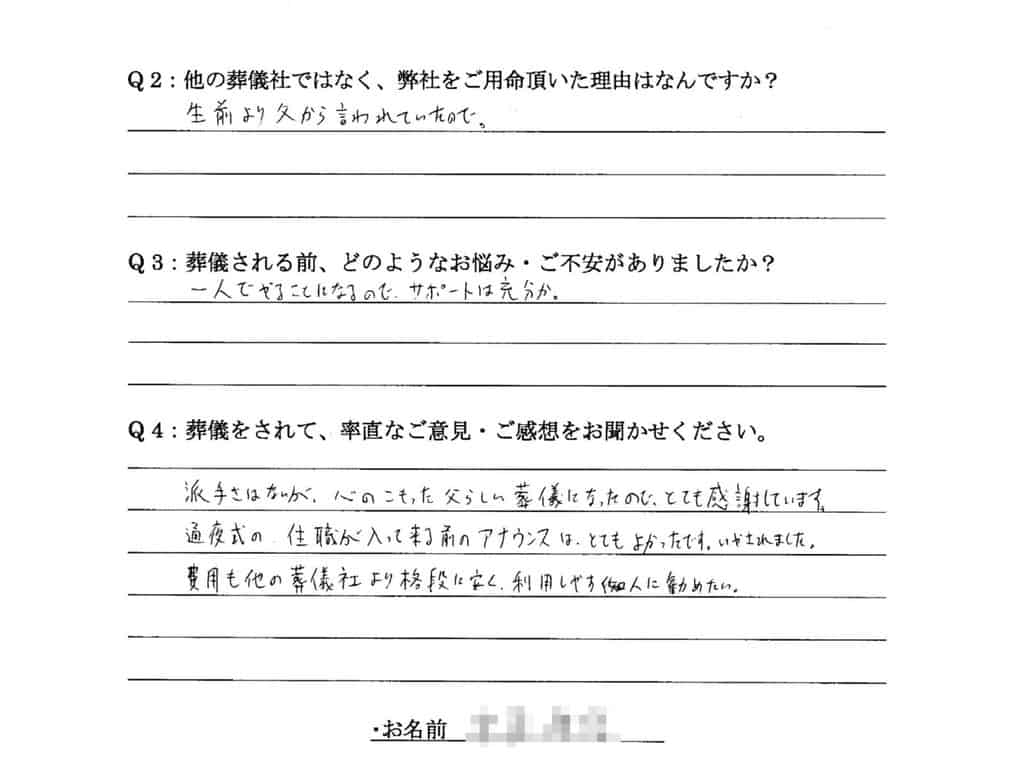 Q2：他の葬儀社ではなく、弊社をご用命頂いた理由はなんですか？
生前より父から言われていたので。
Q3：葬儀される前、どのようなお悩み・ご不安がありましたか？
一人でやることになるので、サポートは充分か。
Q4：葬儀をされて、率直なご意見・ご感想をお聞かせください。
派手さはないが、心のこもった父らしい葬儀になったので、とても感謝しています。
通夜式の、住職が入って来る前のアナウンスは、とてもよかったです。いやされました。
費用も他の葬儀社より格段に安く、利用しやす 知人に勧めたい。
・お名前